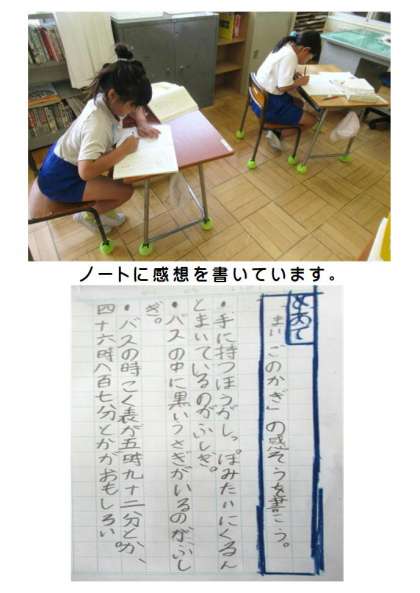 ノートに感想を書いています。
めあて
「まいごのかぎ」の感そうを書こう。
・手に持つほうがしっぽみたいにくるん
とまいているのがふしぎ。
・バスの中に黒いうさぎがいるのがふし
ぎ。
・バスの時こく表が五時九十二分とか、
四十六時八百七分とかがおもしろい。